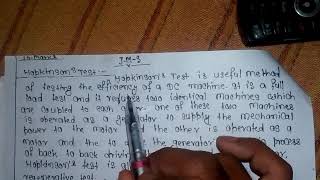 10-Marks J.M-3
Hopkinson's Test:- Hopkinson's Test is useful method
of testing the efficiency of a DC machine. It is a full
load test and it requires two identical machines which
are coupled to each other. one of these two machines
is operated as a generator to supply the mechanical
power to the motor and the other is operated as a
motor and the to drive the generator. process
of back to back driving
Hopkinson's test is al
regenerative test.